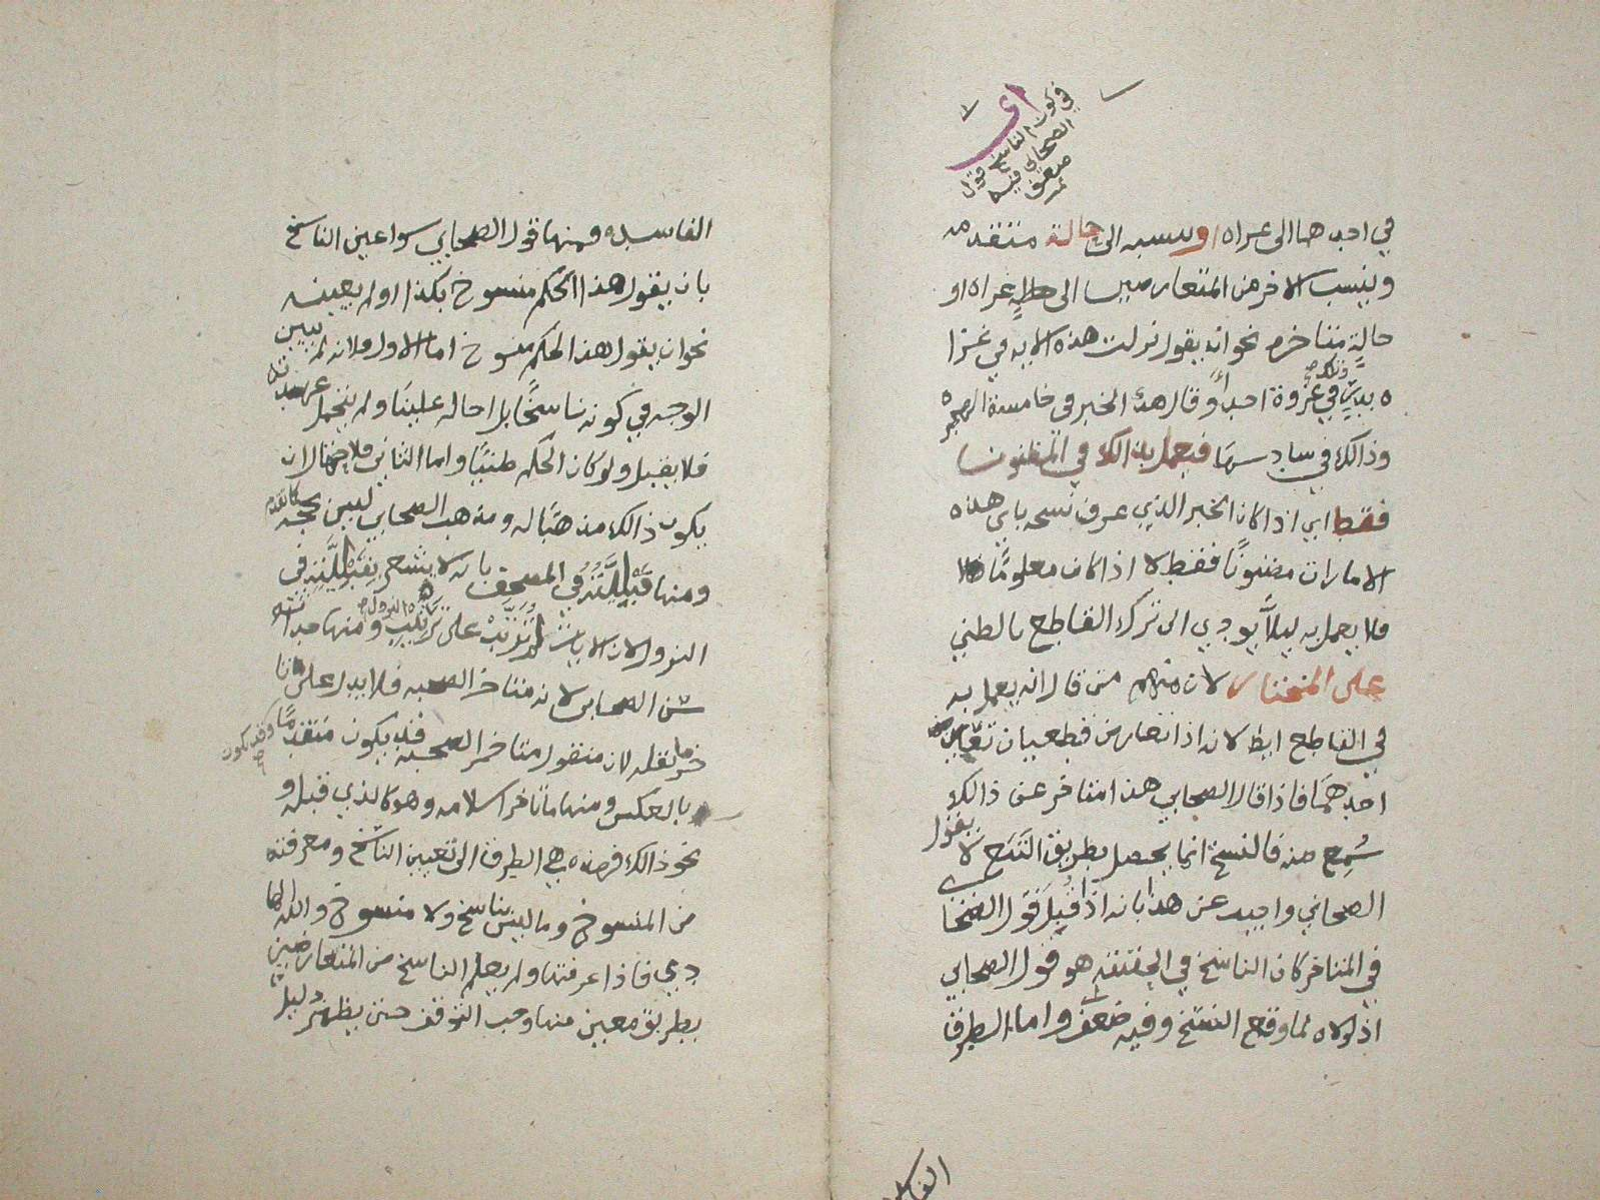 أي
في كون الناسخ قول
الصحابي فيه
ضعف
في احدهما الى غزاه او نسبه الى حالة متقدمه
وينسب الاخر من المتعارضين الى غزاه او
حالةٍ متاخره نحو انه يقول نزلت هذه الايه في غزا
ه بدر في غزوة احد أو قال هذا الخبر في خامسة الهجره
وذالك في سادستها فيعمل بذالك في المظنون
فقط اي اذا كان الخبر الذي عرف نسخه باي هذه
الامارات مضنونًا فقط لا اذا كان معلومًا
فلا يعمل به ليلاَّ يودي الى ترك القاطع بالظني
على المختار لان منهم من قال انه يعمل به
في القاطع ايظا لانه اذا تعارض قطعيان تعين
احدهمَا فاذا قال الصحابي هذا متاخر عن ذالك
سُمِع منه فالنسخ انما يحصل بطريق التبَع لا بقول
الصحابي واجيب عن هذا بانه اذا قُبِل قول الصحا
في المتاخر كان الناسخ في الحقيقه هو قول الصحابي
اذ لولاه لما وقع النسخ وفيه ضعف واما الطرق
الفاسده
الفاسده فمنها قول الصحابي سوا عين الناسخ
بان يقول هذا الحكم منسوخ بكذا او لم يعينه
نحو ان يقول هذا الحكم منسوخ اما الاول فلانه لم يبين
الوجه في كونه ناسخًا بل احاله علينَا ولم يتحمل عهدته
فلا يقبل ولو كان الحكم ظنيًا واما الثاني فلاحتمال ان
يكون ذالك مذهبًا له ومذهب الصحابي ليس بحجه
ومنها قبْليَّتُهُ في المصحف بانه لا يشعر بقبليَّته في
النزول لان الايات لم تُرَتَّبْ على ترتيب النزول ومنها حداثة
سن الصحابي لانه متاخر الصحبه فلا يدل على تا
خر ما نقله لان منقول متاخر الصحبه قد يكون متقدمًا وقد يكون
بالعكس ومنها ما تاخر اسلامه وهو كالذي قبله و
نحو ذالك فهذه هي الطرق الى تعيين الناسخ ومعرفته
من المنسوخ وما ليس بناسخ ولا منسوخ والله الها
دي فاذا عرفتها ولم يعلم الناسخ من المتعارضين
بطريق معين منها وجب التوقف حتى يظهر دليل